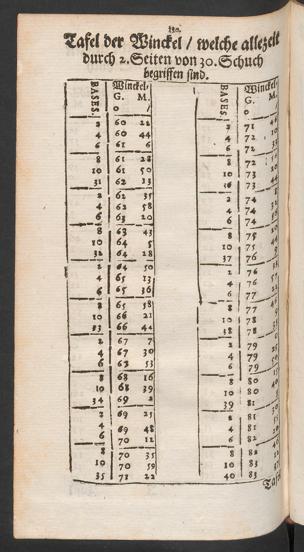 180.
Tafel der Winckel / welche allezeit
durch 2. Seiten von 30. Schuch
begriffen sind.
BASES. Winckel. BASES. Winckel.
G. M. G. M.
0 / 0
2 60 22 2 71 44
4 60 44 4 72
6 61 6 6 72
8 61 28 8 72
10 61 50 10 73
31 62 13 36 73
2 62 35 2 74
4 62 58 4 74
6 63 20 6 74
8 63 43 8 75
10 64 5 10 75
32 64 28 37 76
2 64 50 2 76
4 65 13 4 76
6 65 36 6 77
8 65 58 8 77
10 66 21 10 78
33 66 44 38 78
2 67 7 2 79
4 67 30 4 79
6 67 53 6 79
8 68 16 8 80
10 68 39 10 80
34 69 2 39 81
2 69 25 2 81
4 69 48 4 81
6 70 12 6 82
8 70 35 8 82
10 70 59 10 83
35 71 22 40 83